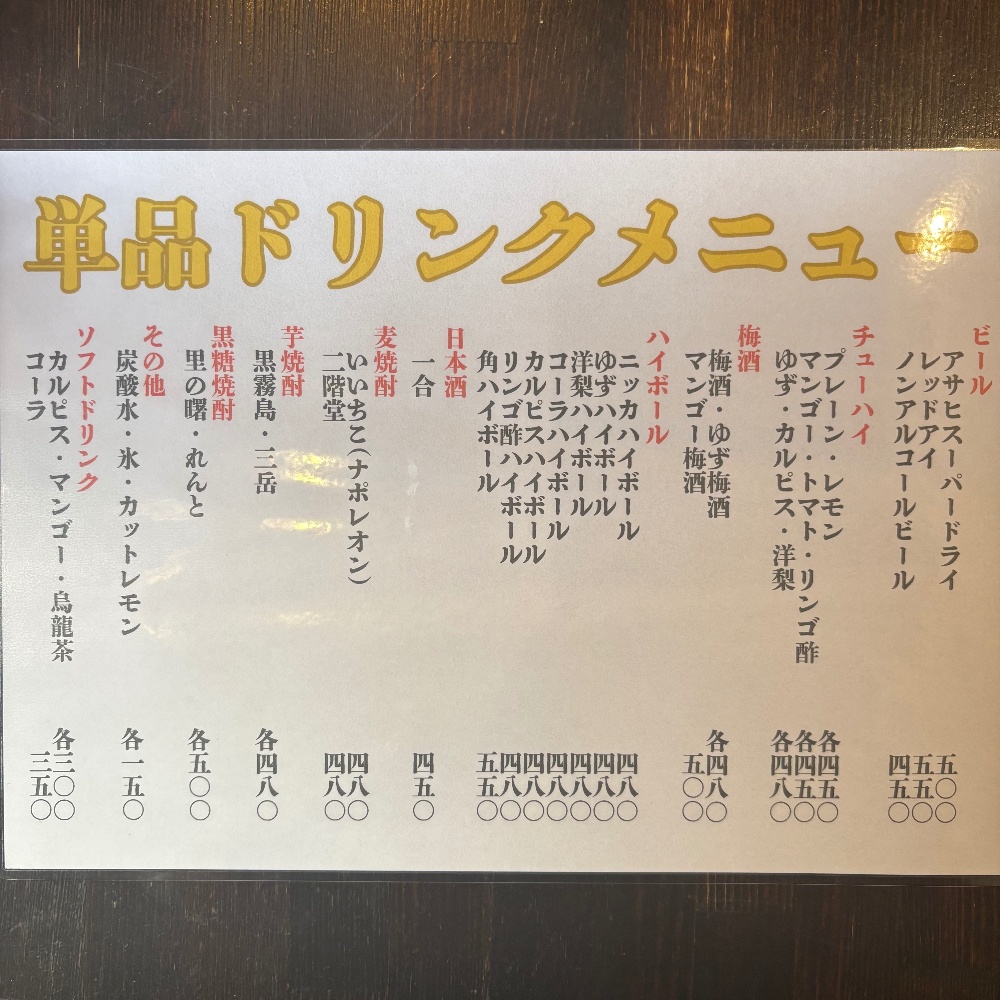 単品ドリンクメニュー
ビール
アサヒスーパードライ 五〇〇
レッドアイ 五五〇
ノンアルコールビール 四五〇
チューハイ
プレーン・レモン 各四五〇
マンゴー・トマト・リンゴ酢 各四五〇
ゆず・カルピス・洋梨 各四八〇
梅酒
梅酒・ゆず梅酒 各四八〇
マンゴー梅酒 五〇〇
ハイボール
ニッカハイボール 四八〇
ゆずハイボール 四八〇
洋梨ハイボール 四八〇
コーラハイボール 四八〇
カルピスハイボール 四八〇
リンゴ酢ハイボール 四八〇
角ハイボール 五五〇
日本酒
一合 四五〇
麦焼酎
いいちこ(ナポレオン) 四八〇
二階堂 四八〇
芋焼酎
黒霧島・三岳 各四八〇
黒糖焼酎
里の曙・れんと 各五〇〇
その他
炭酸水・氷・カットレモン 各一五〇
ソフトドリンク
カルピス・マンゴー・烏龍茶 各三〇〇
コーラ 三五〇